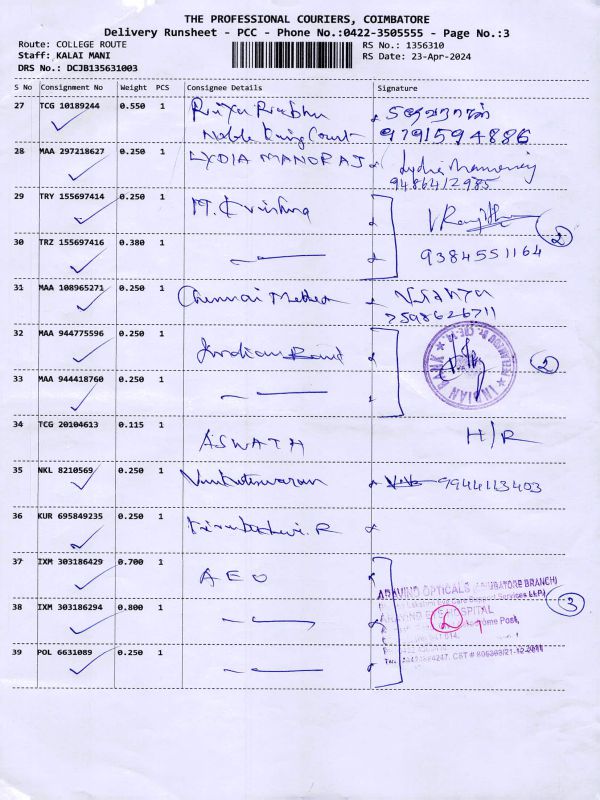 THE PROFESSIONAL COURIERS, COIMBATORE
Delivery Runsheet - PCC - Phone No.:0422-3505555 - Page No.:3
Route: COLLEGE ROUTE
RS No.: 1356310
Staff: KALAI MANI
RS Date: 23-Apr-2024
DRS No.: DCJB135631003
S No Consignment No Weight PCS Consignee Details Signature
27 TCG 10189244 0.550 1 Priya Prabhu
Noble King Court 9791594886
28 MAA 297218627 0.250 1 LYDIA MANORAJ Lydia
9486412985
29 TRY 155697414 0.250 1 M. Krishna
2
30 TRZ 155697416 0.380 1 9384551164
31 MAA 108965271 0.250 1 Chennai
7598626711
32 MAA 944775596 0.250 1 Indian Bank INDIAN BANK 2
33 MAA 944418760 0.250 1
34 TCG 20104613 0.115 1 ASWATH H/R
35 NKL 8210569 0.250 1 Venkateswaran 9944113403
36 KUR 695849235 0.250 1
37 IXM 303186429 0.700 1 AEO
ARAVIND OPTICALS (COIMBATORE BRANCH)
38 IXM 303186294 0.800 1 ARAVIND EYE HOSPITAL 2 3
39 POL 6631089 0.250 1